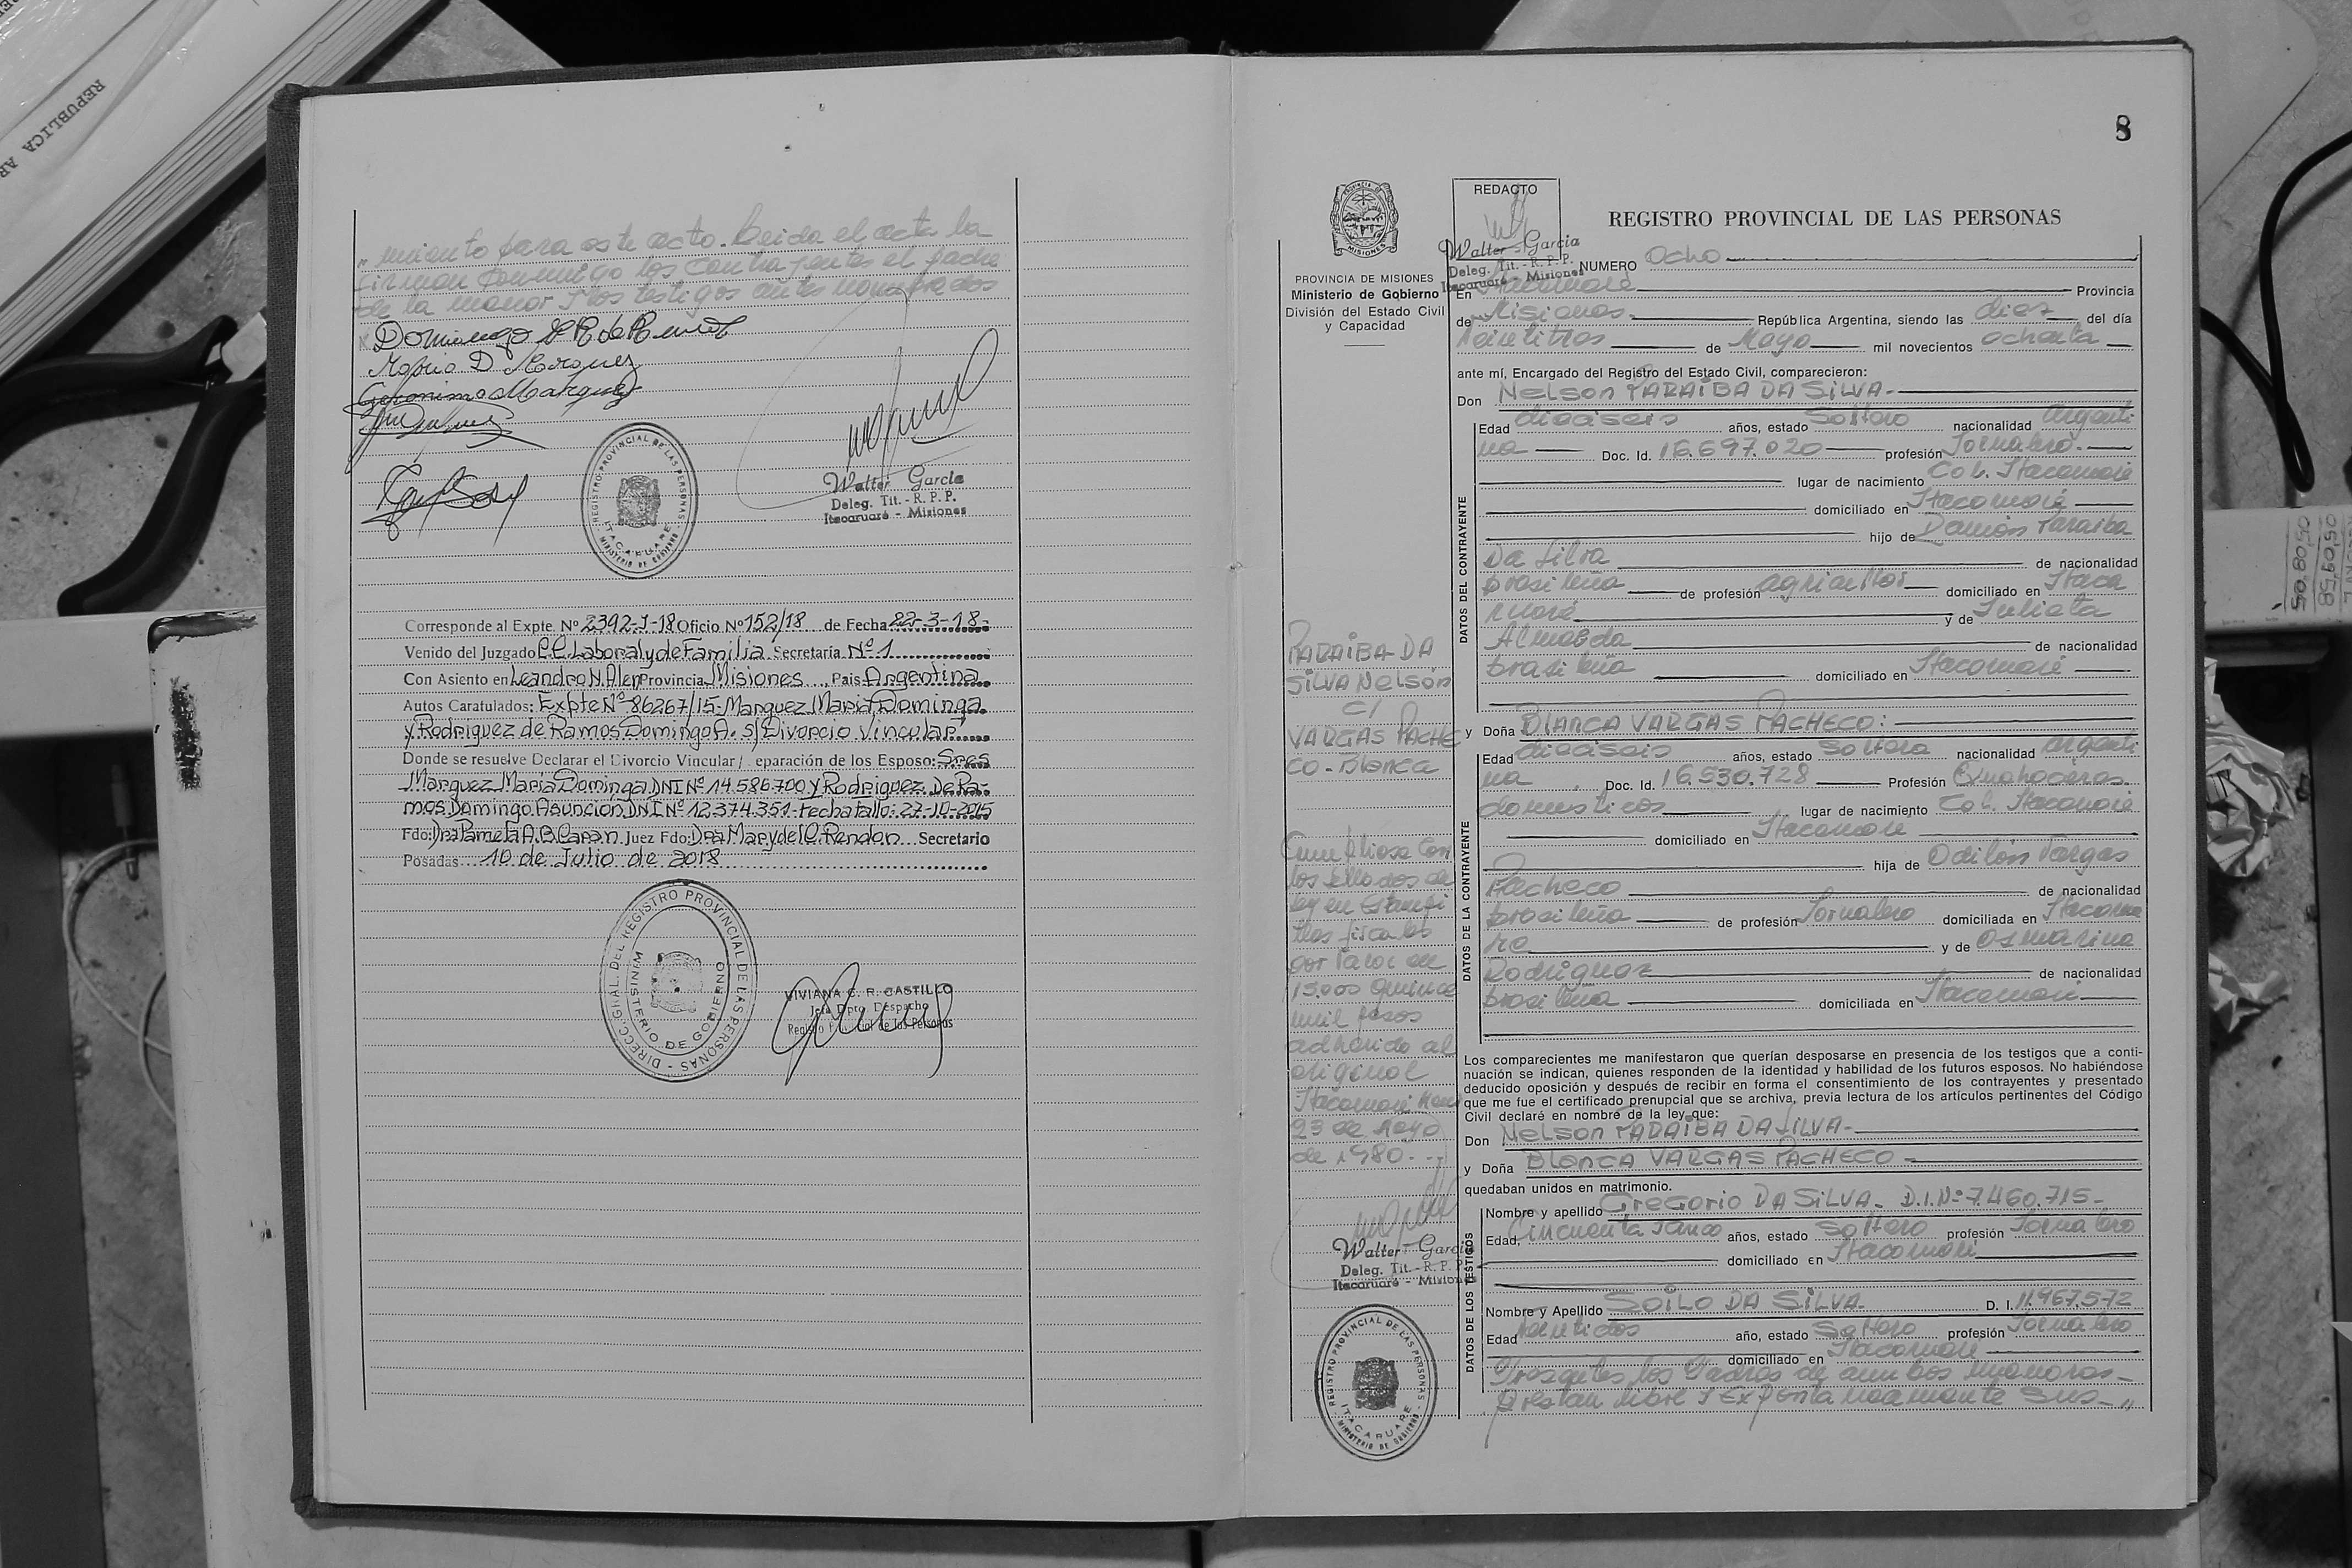 REPUBLICA AR
" miento para este acto. Leida el acta la
firman conmigo los contrayentes el padre
de la menor y los testigos antes nombrados
Geronimo Marquez
REGISTRO PROVINCIAL DE LAS PERSONAS
ITACARUARE
MINISTERIO DE GOBIERNO
Walter García
Deleg. Tit. - R. P. P.
Itacaruaré - Misiones
Corresponde al Expte. Nº 2392-J-18 Oficio Nº 152/18 de Fecha 22-3-18-
Venido del Juzgado C.C. Laboral y de Familia Secretaría Nº 1
Con Asiento en Leandro N. Alen Provincia Misiones Pais Argentina
Autos Caratulados: Expte Nº 86267/15-Marquez Maria Dominga
y Rodriguez de Ramos Domingo A. s/ Divorcio Vincular
Donde se resuelve Declarar el Divorcio Vincular/ eparación de los Esposo: Sres
Marquez Maria Dominga DNI Nº 14.586.700 y Rodriguez De Ra-
mos Domingo Asunción DNI Nº 12.374.351-Fecha Fallo: 27-10-2015
Fdo: Dra Pamela A.B. Juez Fdo: Dra Mary del C. Rendon Secretario
Posadas 10 de Julio de 2018
DIRECC. GRAL. DEL REGISTRO PROVINCIAL DE LAS PERSONAS
MINISTERIO DE GOBIERNO
VIVIANA C. R. CASTILLO
Jefa Dpto. Despacho
Registro Provincial de las Personas
8
REDACTO
REGISTRO PROVINCIAL DE LAS PERSONAS
Walter García
Deleg. Tit. - R. P. P.
Itacaruaré - Misiones
PROVINCIA DE MISIONES
Ministerio de Gobierno
División del Estado Civil
y Capacidad
NUMERO Ocho
En Itacaruaré Provincia
de Misiones República Argentina, siendo las diez del día
Veintitres de Mayo mil novecientos ochenta
ante mí, Encargado del Registro del Estado Civil, comparecieron:
Don Nelson PARAIBA DA SILVA.-
DATOS DEL CONTRAYENTE
Edad dieciseis años, estado Soltero nacionalidad Argenti
na Doc. Id. 16.697.020 profesión Jornalero.
lugar de nacimiento Col. Itacaruaré
domiciliado en Itacaruaré
hijo de Ramón Paraiba
Da Silva de nacionalidad
brasileña de profesión agricultor domiciliado en Itaca
ruaré y de Julieta
Almeida de nacionalidad
brasileña domiciliado en Itacaruaré
PARAIBA DA
SILVA Nelson
C/
VARGAS PACHE
CO - Blanca
y Doña BLANCA VARGAS PACHECO:
DATOS DE LA CONTRAYENTE
Edad dieciseis años, estado Soltera nacionalidad Argenti
na Doc. Id. 16.530.728 Profesión Quehaceres
domesticos lugar de nacimiento Col. Itacaruaré
domiciliado en Itacaruaré
hija de Odilón Vargas
Pacheco de nacionalidad
brasileña de profesión Jornalero domiciliada en Itacarua
re y de Osmarina
Rodriguez de nacionalidad
brasileña domiciliada en Itacaruaré
Cumpliose con
los sellados de
ley en Estampi
llas fiscales
por valor de
15.000 quince
mil pesos
adherido al
original
Itacaruaré
23 de Mayo
de 1980.
Los comparecientes me manifestaron que querían desposarse en presencia de los testigos que a conti-
nuación se indican, quienes responden de la identidad y habilidad de los futuros esposos. No habiéndose
deducido oposición y después de recibir en forma el consentimiento de los contrayentes y presentado
que me fue el certificado prenupcial que se archiva, previa lectura de los artículos pertinentes del Código
Civil declaré en nombre de la ley que:
Don Nelson PARAIBA DA SILVA-
y Doña Blanca VARGAS PACHECO
quedaban unidos en matrimonio.
DATOS DE LOS TESTIGOS
Nombre y apellido Gregorio DA SILVA- D.I.Nº 7.460.715-
Edad, cincuenta años, estado Soltero profesión Jornalero
domiciliado en Itacaruaré
Nombre y Apellido SOILO DA SILVA- D. I. 11.967.572
Edad veintidos año, estado Soltero profesión Jornalero
domiciliado en Itacaruaré
Presentes los Padres de ambos menores-
prestan libre y Expontaneamente sus-"
Walter García
Deleg. Tit. - R. P. P.
Itacaruaré - Misiones
REGISTRO PROVINCIAL DE LAS PERSONAS
ITACARUARE
MINISTERIO DE GOBIERNO